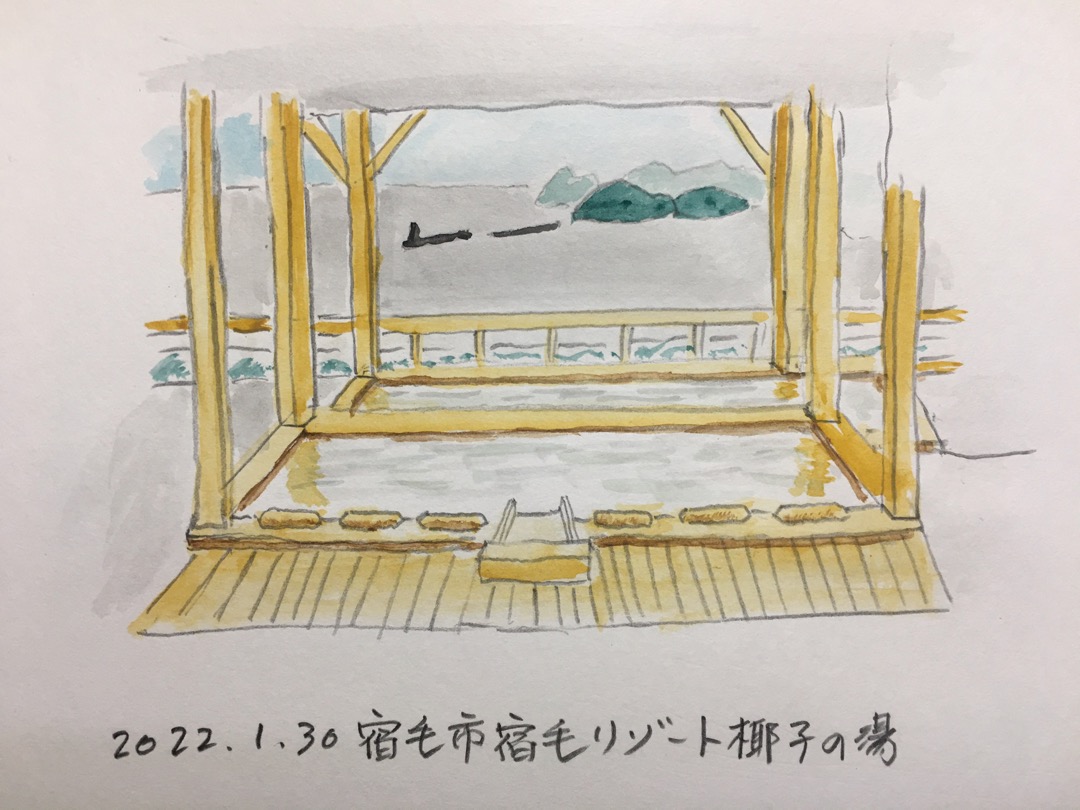 2022.1.30 宿毛市宿毛リゾート椰子の湯